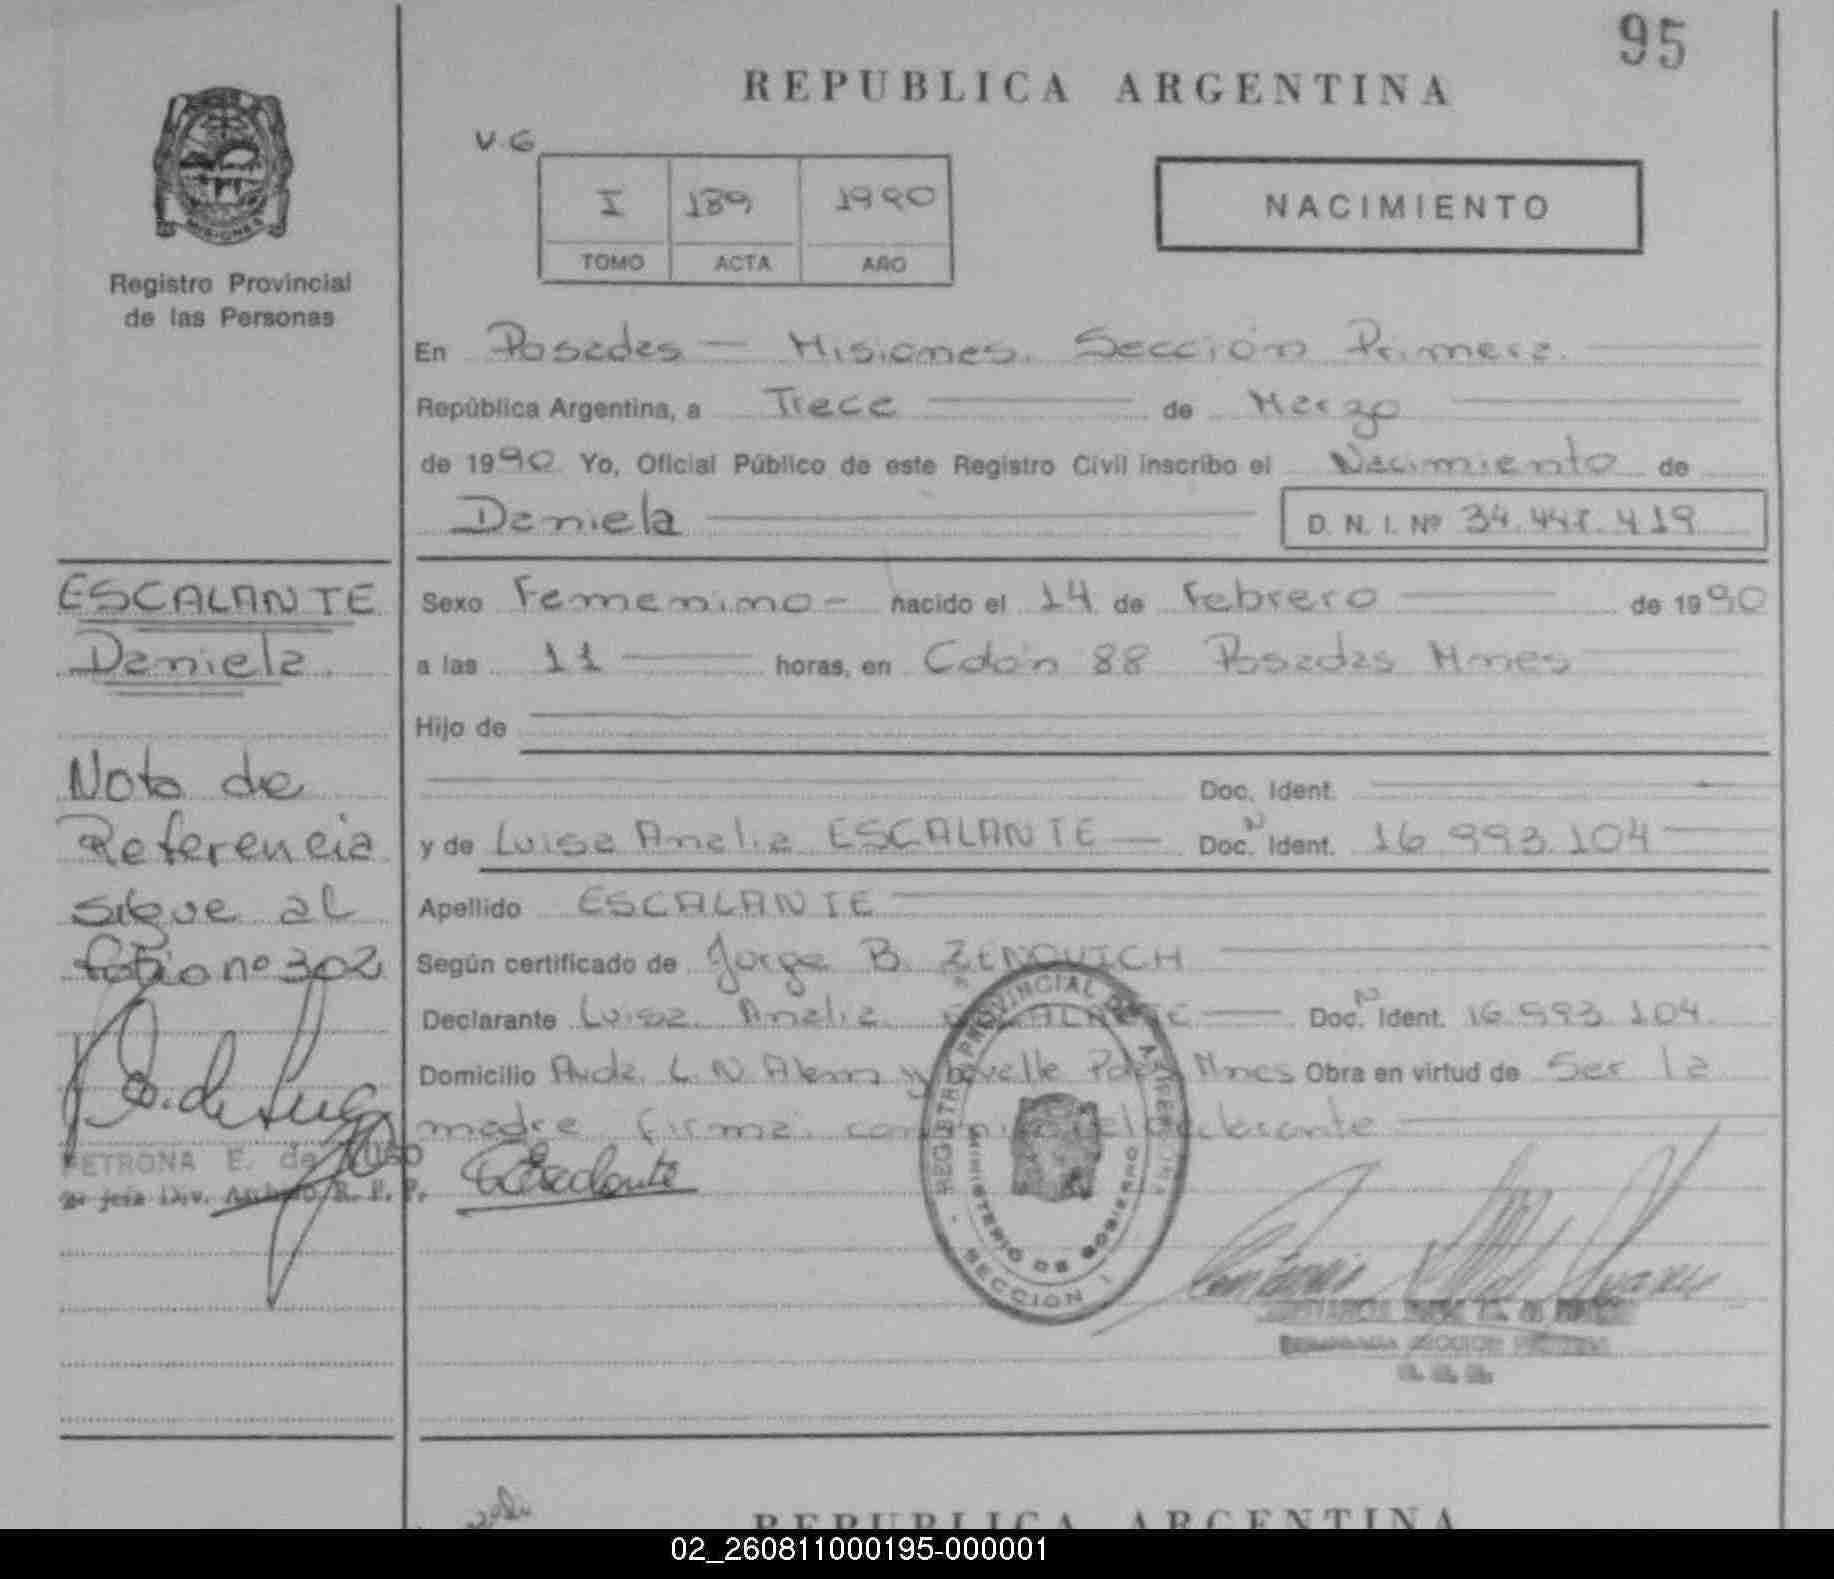 95
REPUBLICA ARGENTINA
V.G
I 189 1990
TOMO ACTA AÑO
NACIMIENTO
MISIONES
Registro Provincial
de las Personas
En Posadas — Misiones. Sección Primera.
República Argentina, a Trece de Marzo
de 1990 Yo, Oficial Público de este Registro Civil inscribo el Nacimiento de
Daniela D. N. I. Nº 34.44 .419
ESCALANTE
Daniela
Sexo Femenino - nacido el 14 de Febrero de 1990
a las 11 horas, en Colón 88 Posadas Mnes
Hijo de
Doc. Ident.
y de Luisa Analia ESCALANTE — Doc. N Ident. 16.993.104
Apellido ESCALANTE
Según certificado de Jorge B. ZENOVICH
Declarante Luisa Analia ESCALANTE — Doc. N Ident. 16.993.104
Domicilio Avda. L. N. Alem y Lavalle Pdas Mnes Obra en virtud de Ser la
madre firma: conmigo el declarante
Nota de
Referencia
sigue al
folio nº 302
PETRONA E. de LUGO
2º jefa Div. Archivo R. P. P.
Escalante
REGISTRO PROVINCIAL DE LAS PERSONAS
MINISTERIO DE GOBIERNO
SECCION I
SECCION
REPUBLICA ARGENTINA
02_260811000195-000001